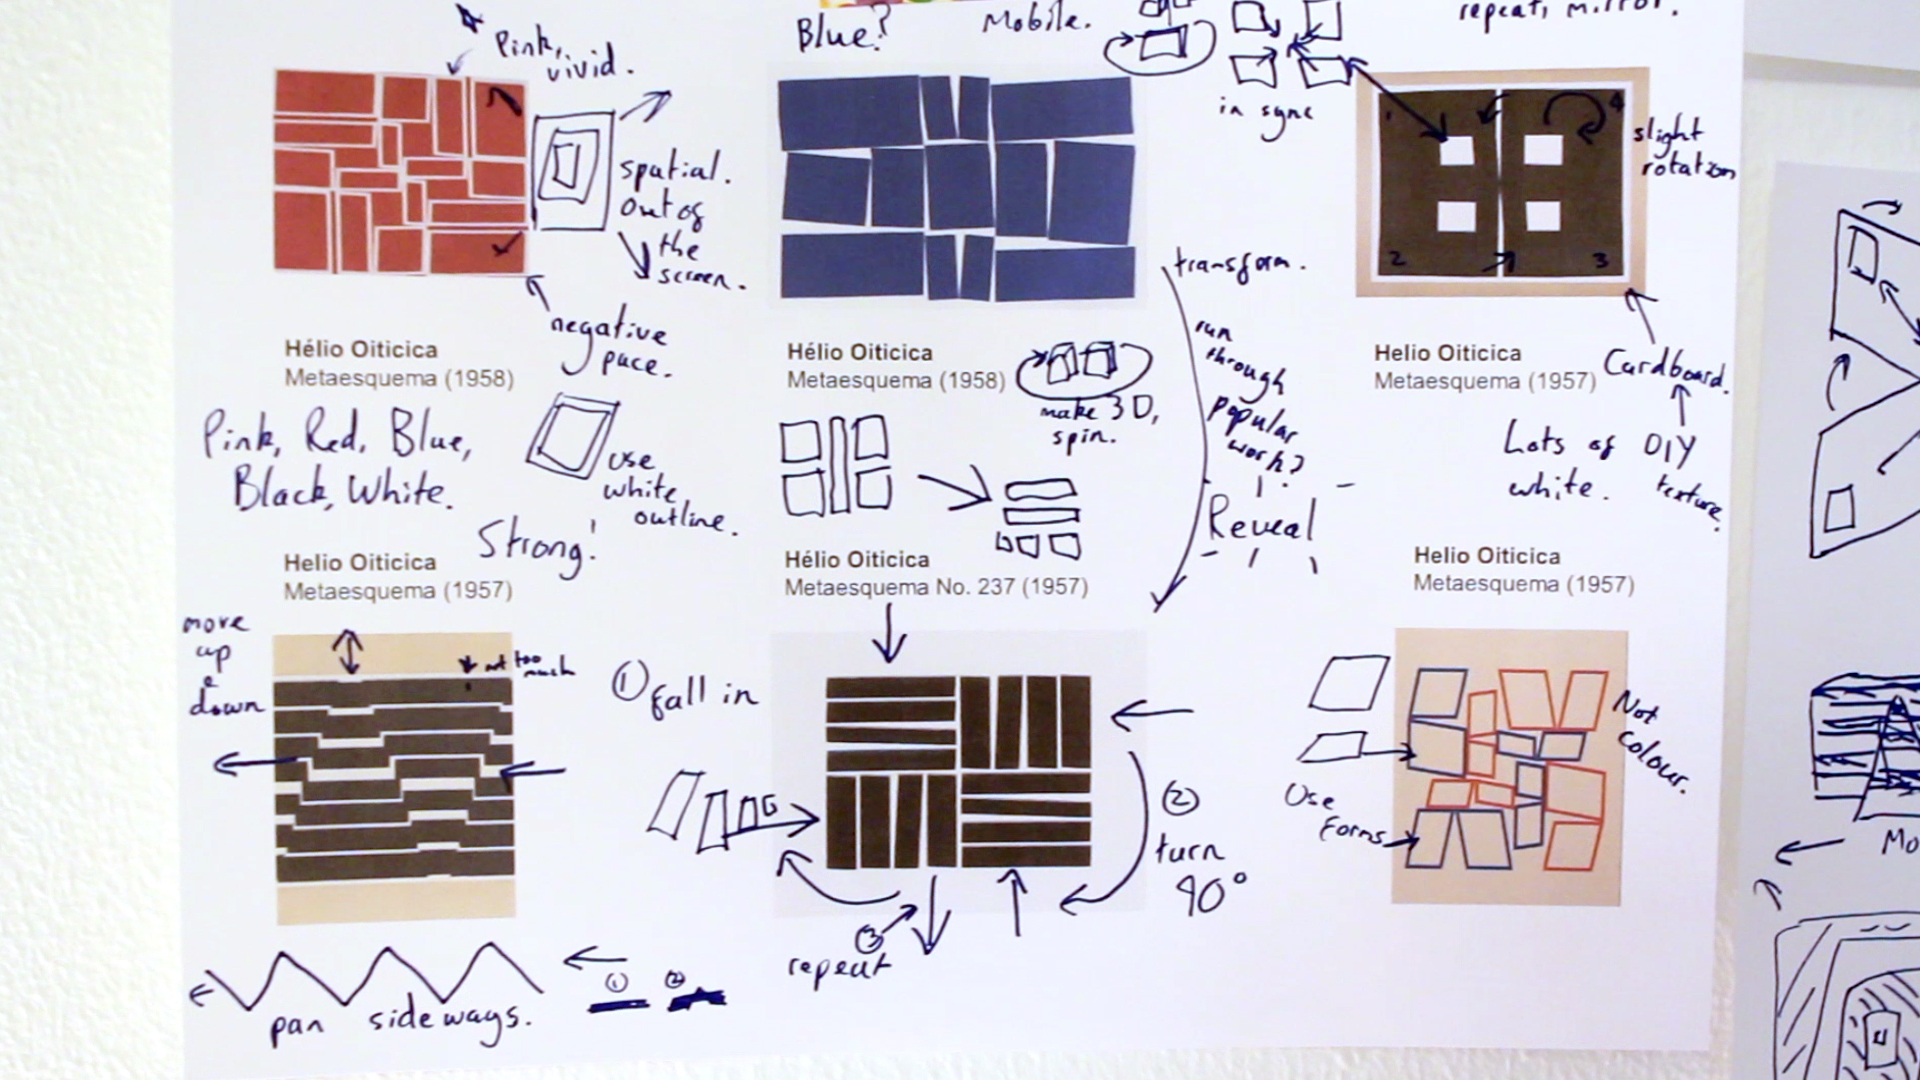 Pink,
vivid.
Blue?
Mobile.
repeat, mirror.
in sync
spatial.
Out of
the
screen.
1
4
2
3
slight
rotation
negative
pace.
transform.
run
through
popular
work?
Reveal
Hélio Oiticica
Metaesquema (1958)
Hélio Oiticica
Metaesquema (1958)
Helio Oiticica
Metaesquema (1957)
Cardboard.
make 3D,
spin.
Pink, Red, Blue,
Black, White.
Strong!
use
white
outline.
Lots of
white.
DIY
texture.
Helio Oiticica
Metaesquema (1957)
Hélio Oiticica
Metaesquema No. 237 (1957)
Helio Oiticica
Metaesquema (1957)
move
up
&
down
not too
much
1 fall in
2
turn
90°
3
repeat
Not
colour.
Use
forms
pan sideways.
1 2
Mo